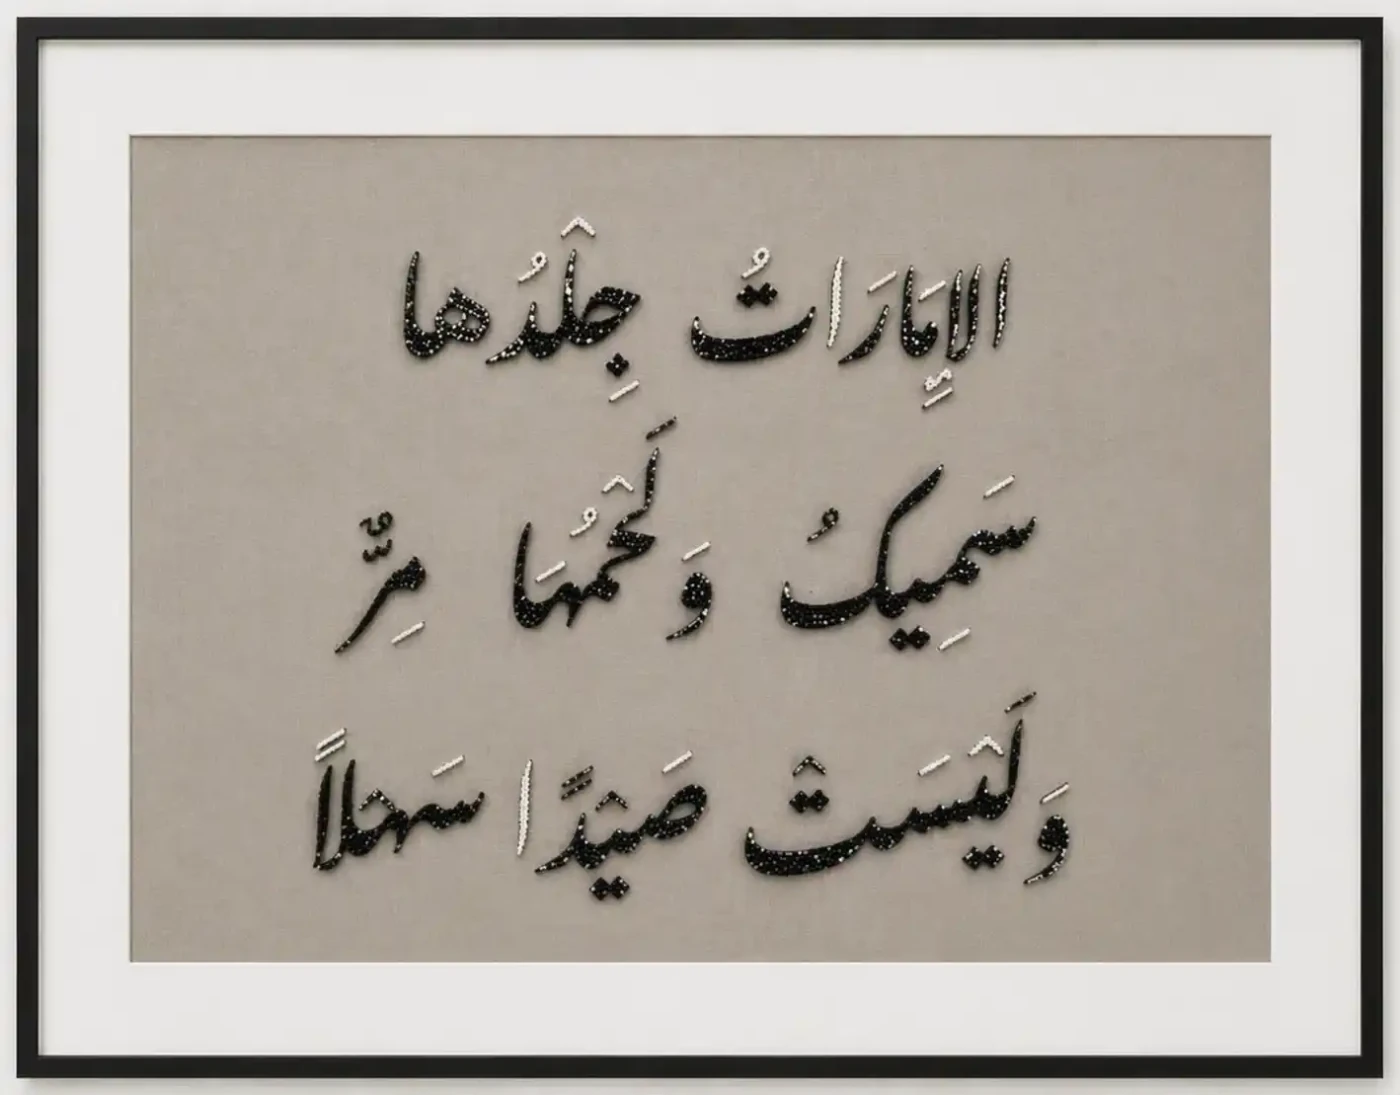 الإِمَارَاتُ جِلْدُها
سَمِيكُ وَ لَحْمُهَا مِرٌّ
وَ لَيْسَتْ صَيْدًا سَهْلاً